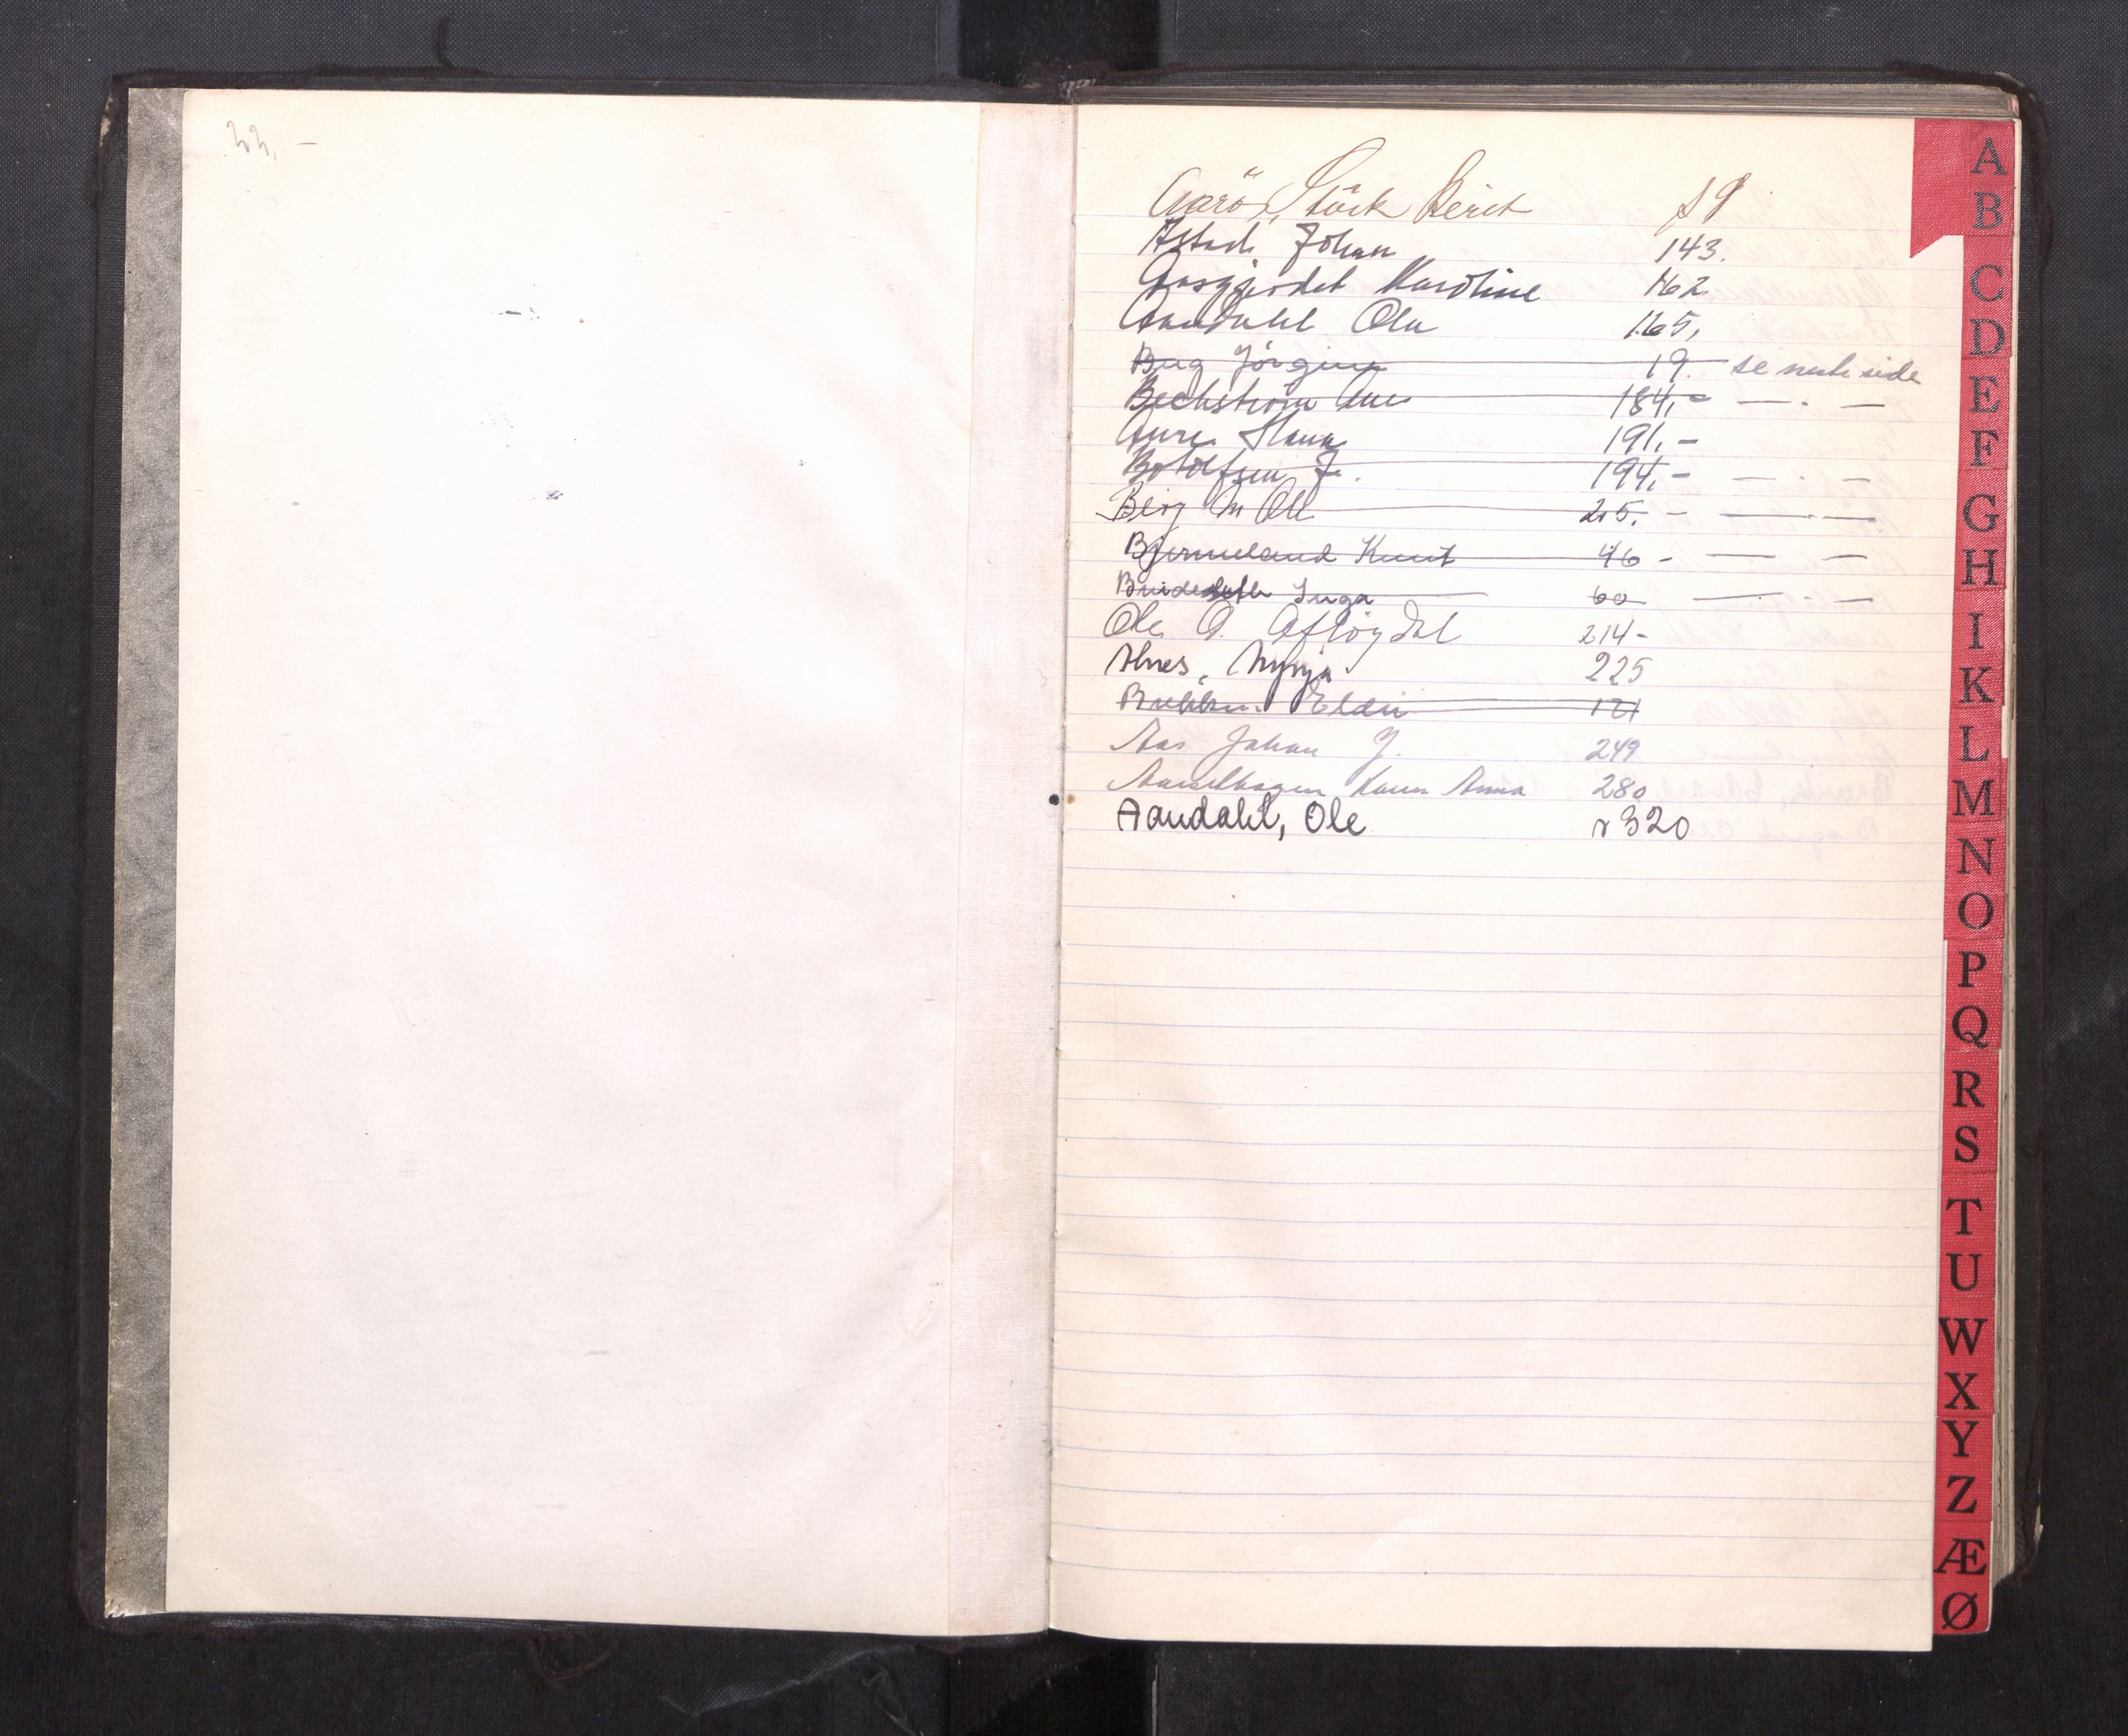 22. –
Aarö, Stöck Berit 89
Astad, Johan 143.
Aasgjerdet Karoline 162.
Aandahl Ola 165,
Berg Jörgine 19. se neste side
Bechström Ane 184,- — . —
Aure Hans 191.-
Botolfsen J. 194.- — . —
Berg M Ole 215. - — —
Bjermeland Knut 46 - — —
Inga 60 — . —
Ole O. Afløgdal 214-
Alnes, 225
Eldri 121
Aas Johan J. 249
Karen Anna 280
Aandahl, Ole v 320
A
B
C
D
E
F
G
H
I
K
L
M
N
O
P
Q
R
S
T
U
W
X
Y
Z
Æ
Ø